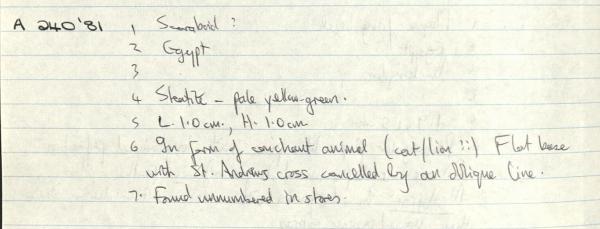 A 240'81 1 Scaraboid ?
2 Egypt
3
4 Steatite - pale yellow-green.
5 L. 1.0cm., H. 1.0cm
6 In form of couchant animal (cat/lion ?:) Flat base
with St. Andrews cross cancelled by an oblique line.
7. Found unnumbered in stores.